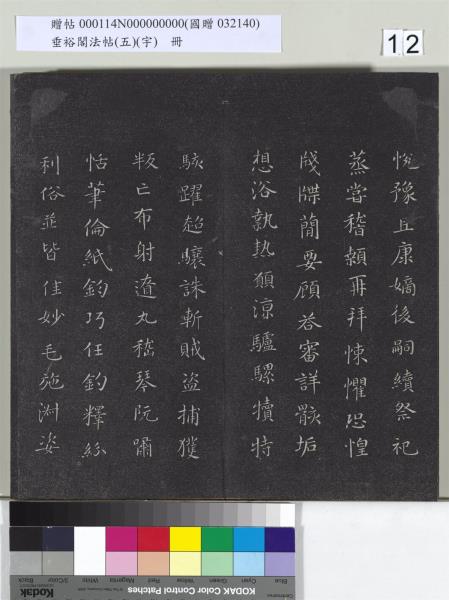 贈帖 000114N000000000(國贈 032140)
垂裕閣法帖(五)(字) 冊
12
悅豫且康嫡後嗣續祭祀
蒸嘗稽顙再拜悚懼恐惶
牋牒簡要顧答審詳骸垢
想浴執熱願涼驢騾犢特
駭躍超驤誅斬賊盜捕獲
叛亡布射遼丸嵇琴阮嘯
恬筆倫紙鈞巧任釣釋紛
利俗並皆佳妙毛施淑姿
Blue Cyan Green Yellow Red Magenta White 3/Color Black
KODAK Color Control Patches
Kodak